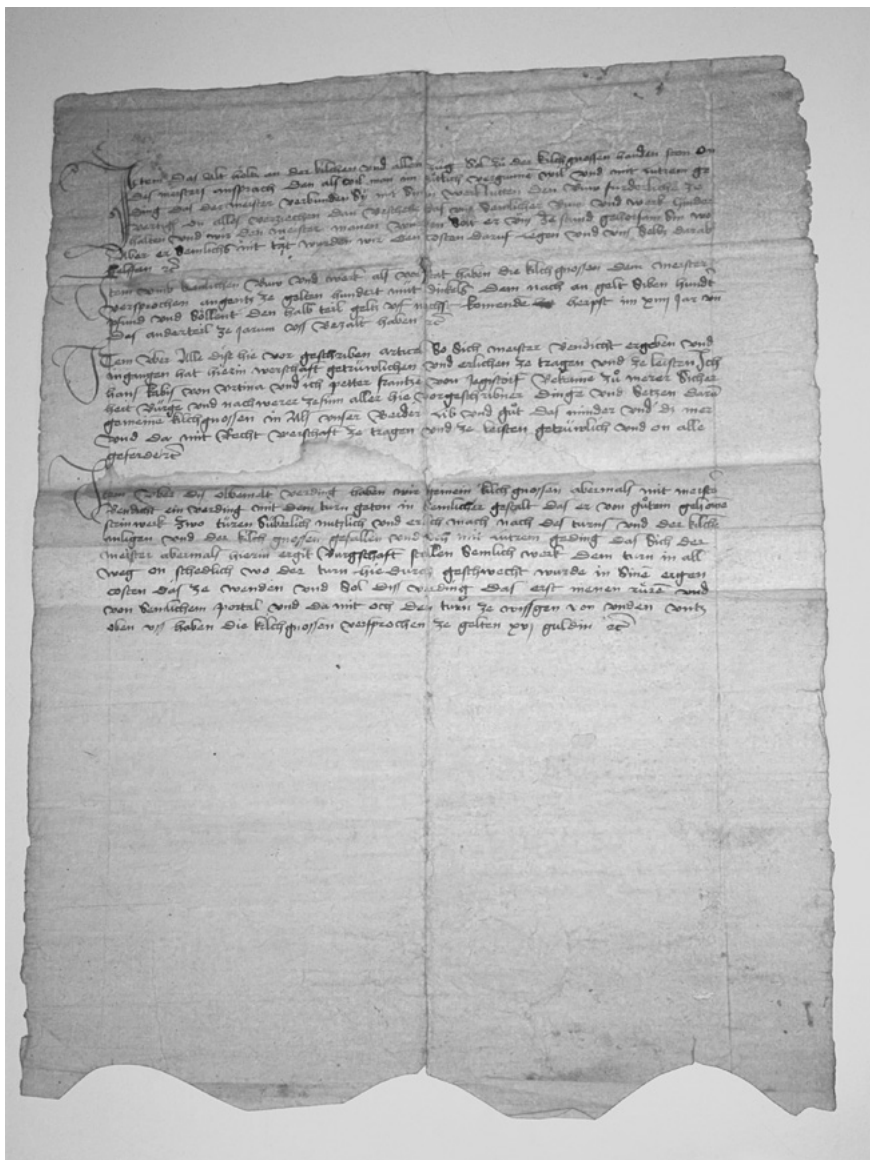 Item Das alt holtz an der kilchen und allen zug Sol zů der kilchgnossen handen ston On
des meisters ansprach Den als vil man im gůtlich vergunne wil und mit lutrem ge
ding das der meister verbunden Sy mit Sinen werklutten Den Buw fürderlichen ze
vertigen on alles verziechen Dan beschech das uns Semlicher Buw und werk hinder
halten und wir Den meister manen wurden Solt er uns ze stund gehorsam Sin wo
Aber er Semlichs nit tåt wurden wir Den costen daruf legen und uns Selbs darab
helffen ꝛc
Item umb Semlichen Buw und werk als vorstat haben die kilchgnossen Dem meister
versprochen angentz ze gelten hundert mütt dinkels Dem nach an gelt Siben hundert
pfund und Söllent Den halb teil geltz uff nechst komende herpst im xiiij jar und
Das anderteil ze jarum uss bezalt haben ꝛc
Item Uber Alle Dise hie vor geschriben artickel So Sich meister Bendicht ergeben und
ingangen hat hierin werschaft getrüwlichen und erlichen ze tragen und ze leisten Ich
hans von und ich petter frantz von Jagistorf Bekenne zů merer Sicher
heit Bürge und nachwerer ze sinn aller hie vorgeschribner Dinge und Setzen Darum
gemeine kilchgnossen in Als unser Beider lib und gůt das minder und Dz mer
und Da mit Recht werschaft ze tragen und ze leisten getrüwlich und on alle
geferde ꝛc
Item Uber Dis obbemelt verding haben wir gemein kilchgnossen abermals mit meister
Bendicht ein verding mit dem turn geton in Semlicher gestalt Das er von gůtem gehowe
steinwerk zwo türen Süberlich nutzlich und erlich mach nach des turns und der kilche
anligen und der kilchgnossen gefallen und och mit lutrem geding das Sich der
meister abermals hierin ergit Bürgschaft stellen Semlich werk Dem turn in all
weg on schedlich wo der turn hie durch geschwecht wurde in Sinem eigen
costen das ze wenden und Sol Diss verding das erst nienen rüren und
von Semlichem portal und da mit och Den turn ze wissgen von unden untz
oben uss haben die kilchgnossen versprochen ze gelten xvj guldin ꝛc